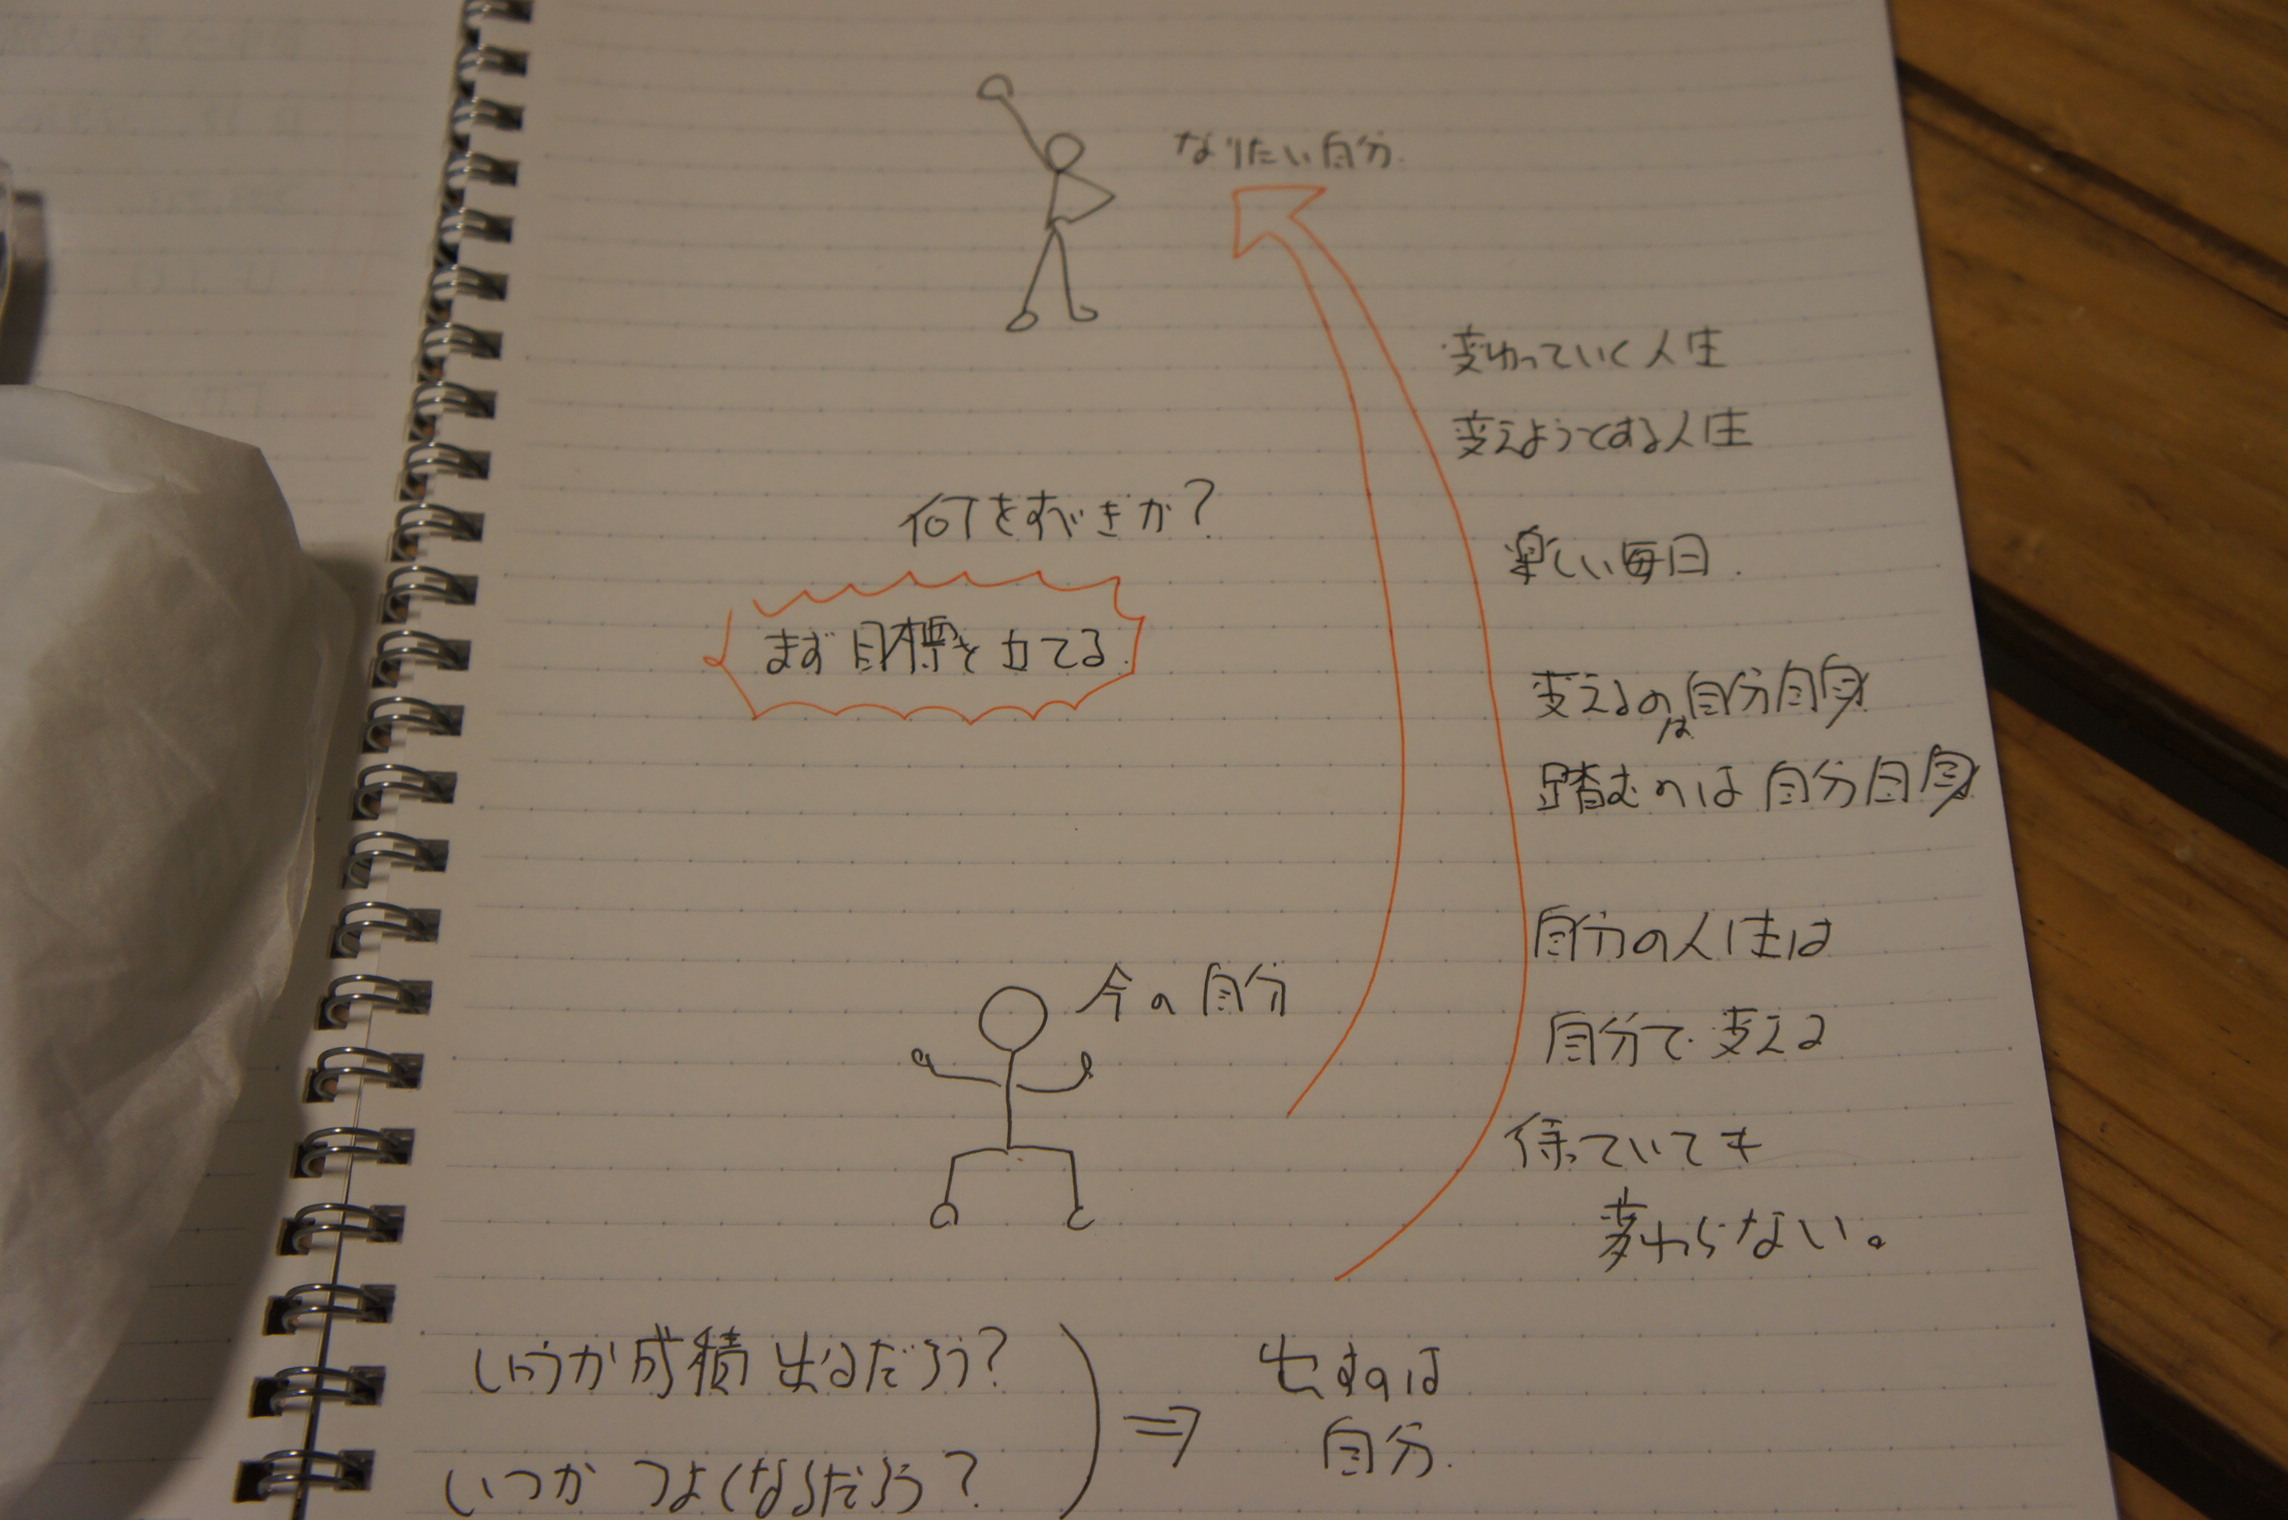 なりたい自分
変わっていく人生
変えようとする人生
何をすべきか?
楽しい毎日.
まず目標を立てる.
変えるのは自分自身
踏むのは自分自身
自分の人生は
今の自分
自分で変える
待っていても
変わらない。
いつか成績出るだろう?
出すのは
自分.
いつかつよくなるだろう?